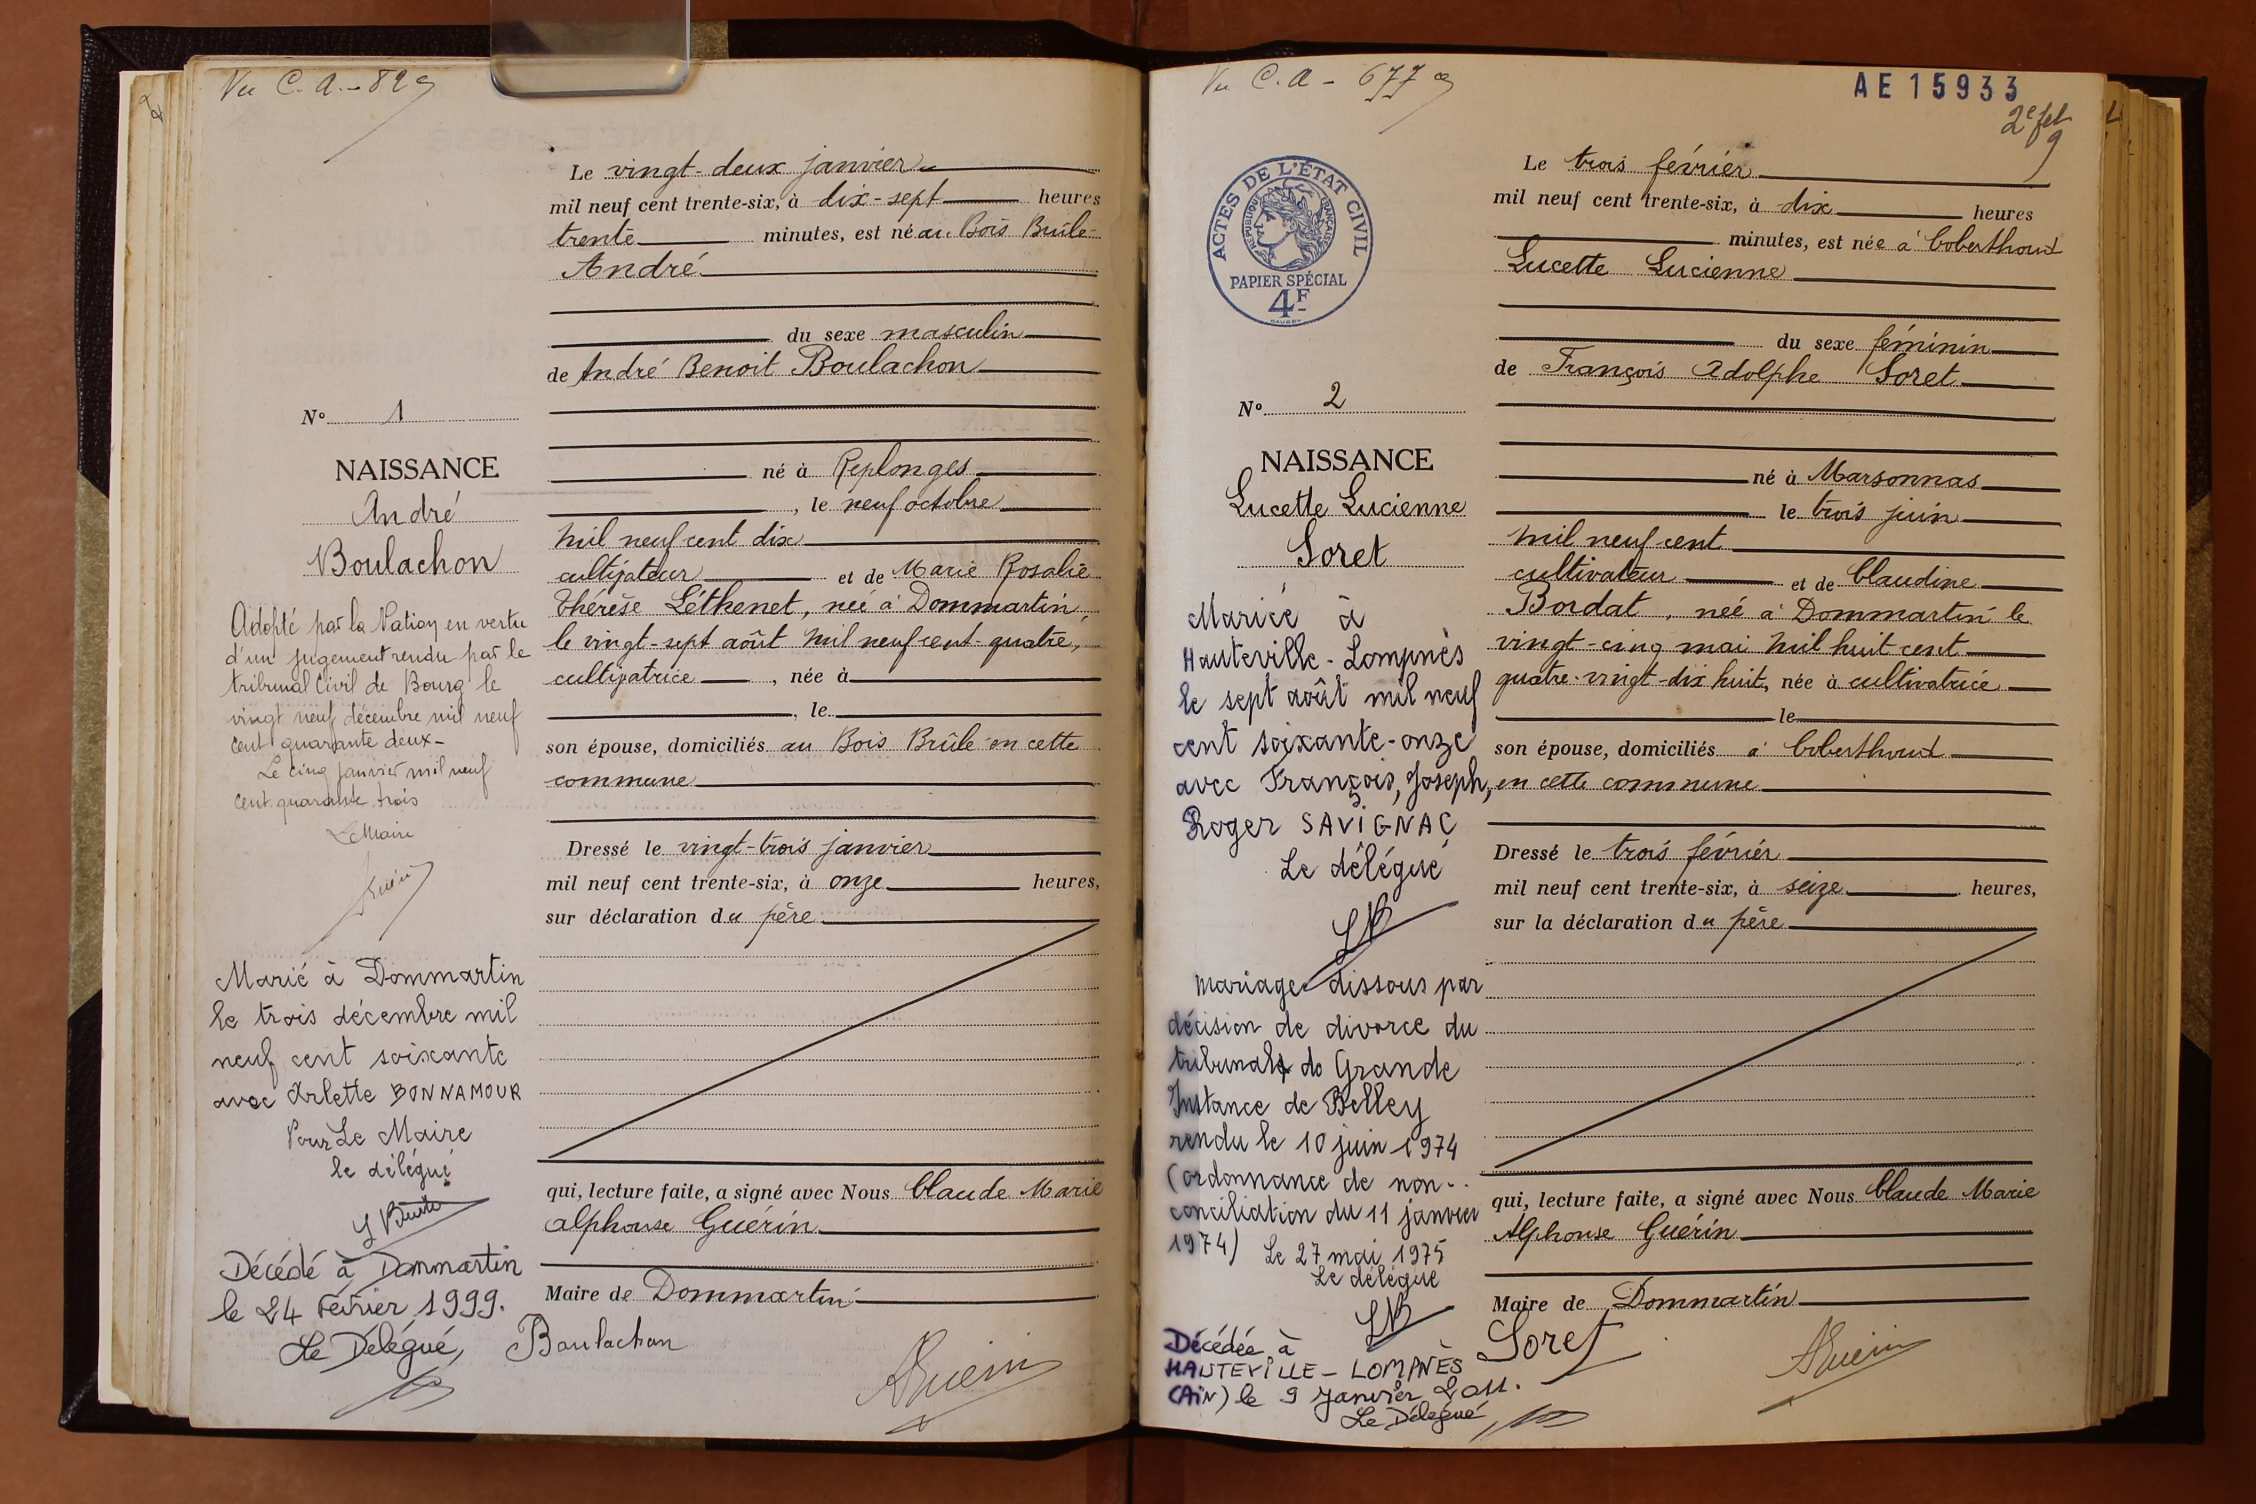 Vu C. A. - 82
Le vingt-deux janvier
mil neuf cent trente-six, à dix-sept heures
trente minutes, est né au Bois Brûlé
André
du sexe masculin
de André Benoit Boulachon
né à Replonges
, le neuf octobre
mil neuf cent dix
cultivateur et de Marie Rosalie
Thérèse Léthenet, née à Dommartin,
le vingt-sept août mil neuf cent quatre,
cultivatrice , née à
, le
son épouse, domiciliés au Bois Brûlé en cette
commune
Dressé le vingt-trois janvier
mil neuf cent trente-six, à onze heures,
sur déclaration du père
qui, lecture faite, a signé avec Nous Claude Marie
Alphonse Guérin
Maire de Dommartin
Boulachon
AGuérin
N° 1
NAISSANCE
André
Boulachon
Adopté par la Nation en vertu
d'un jugement rendu par le
tribunal Civil de Bourg le
vingt neuf décembre mil neuf
cent quarante deux-
Le cinq janvier mil neuf
cent quarante trois
Le Maire
Guérin
Marié à Dommartin
le trois décembre mil
neuf cent soixante
avec Arlette BONNAMOUR
Pour Le Maire
le délégué
Décédé à Dommartin
le 24 Février 1999.
Le Délégué,
Vu C. A - 677
AE15933
2e fet
9
ACTES DE L'ÉTAT CIVIL
RÉPUBLIQUE FRANÇAISE
PAPIER SPÉCIAL
4F
Le trois février
mil neuf cent trente-six, à dix heures
minutes, est née à Coberthoud
Lucette Lucienne
du sexe féminin
de François Adolphe Soret
né à Marsonnas
le trois juin
mil neuf cent
cultivateur et de Claudine
Bordat, née à Dommartin le
vingt-cinq mai mil huit cent
quatre-vingt-dix huit, née à cultivatrice
le
son épouse, domiciliés à Coberthoud
en cette commune
Dressé le trois février
mil neuf cent trente-six, à seize heures,
sur la déclaration du père
qui, lecture faite, a signé avec Nous Claude Marie
Alphonse Guérin
Maire de Dommartin
Soret
AGuérin
N° 2
NAISSANCE
Lucette Lucienne
Soret
Mariée à
Hauteville-Lompnès
le sept août mil neuf
cent soixante-onze
avec François, Joseph,
Roger SAVIGNAC
Le délégué
LB
mariage dissous par
décision de divorce du
tribunal de Grande
Instance de Belley
rendu le 10 juin 1974
(ordonnance de non-
conciliation du 11 janvier
1974) Le 27 mai 1975
Le délégué
LB
Décédée à
HAUTEVILLE-LOMPNÈS
(AiN) le 9 Janvier 2011.
Le Délégué